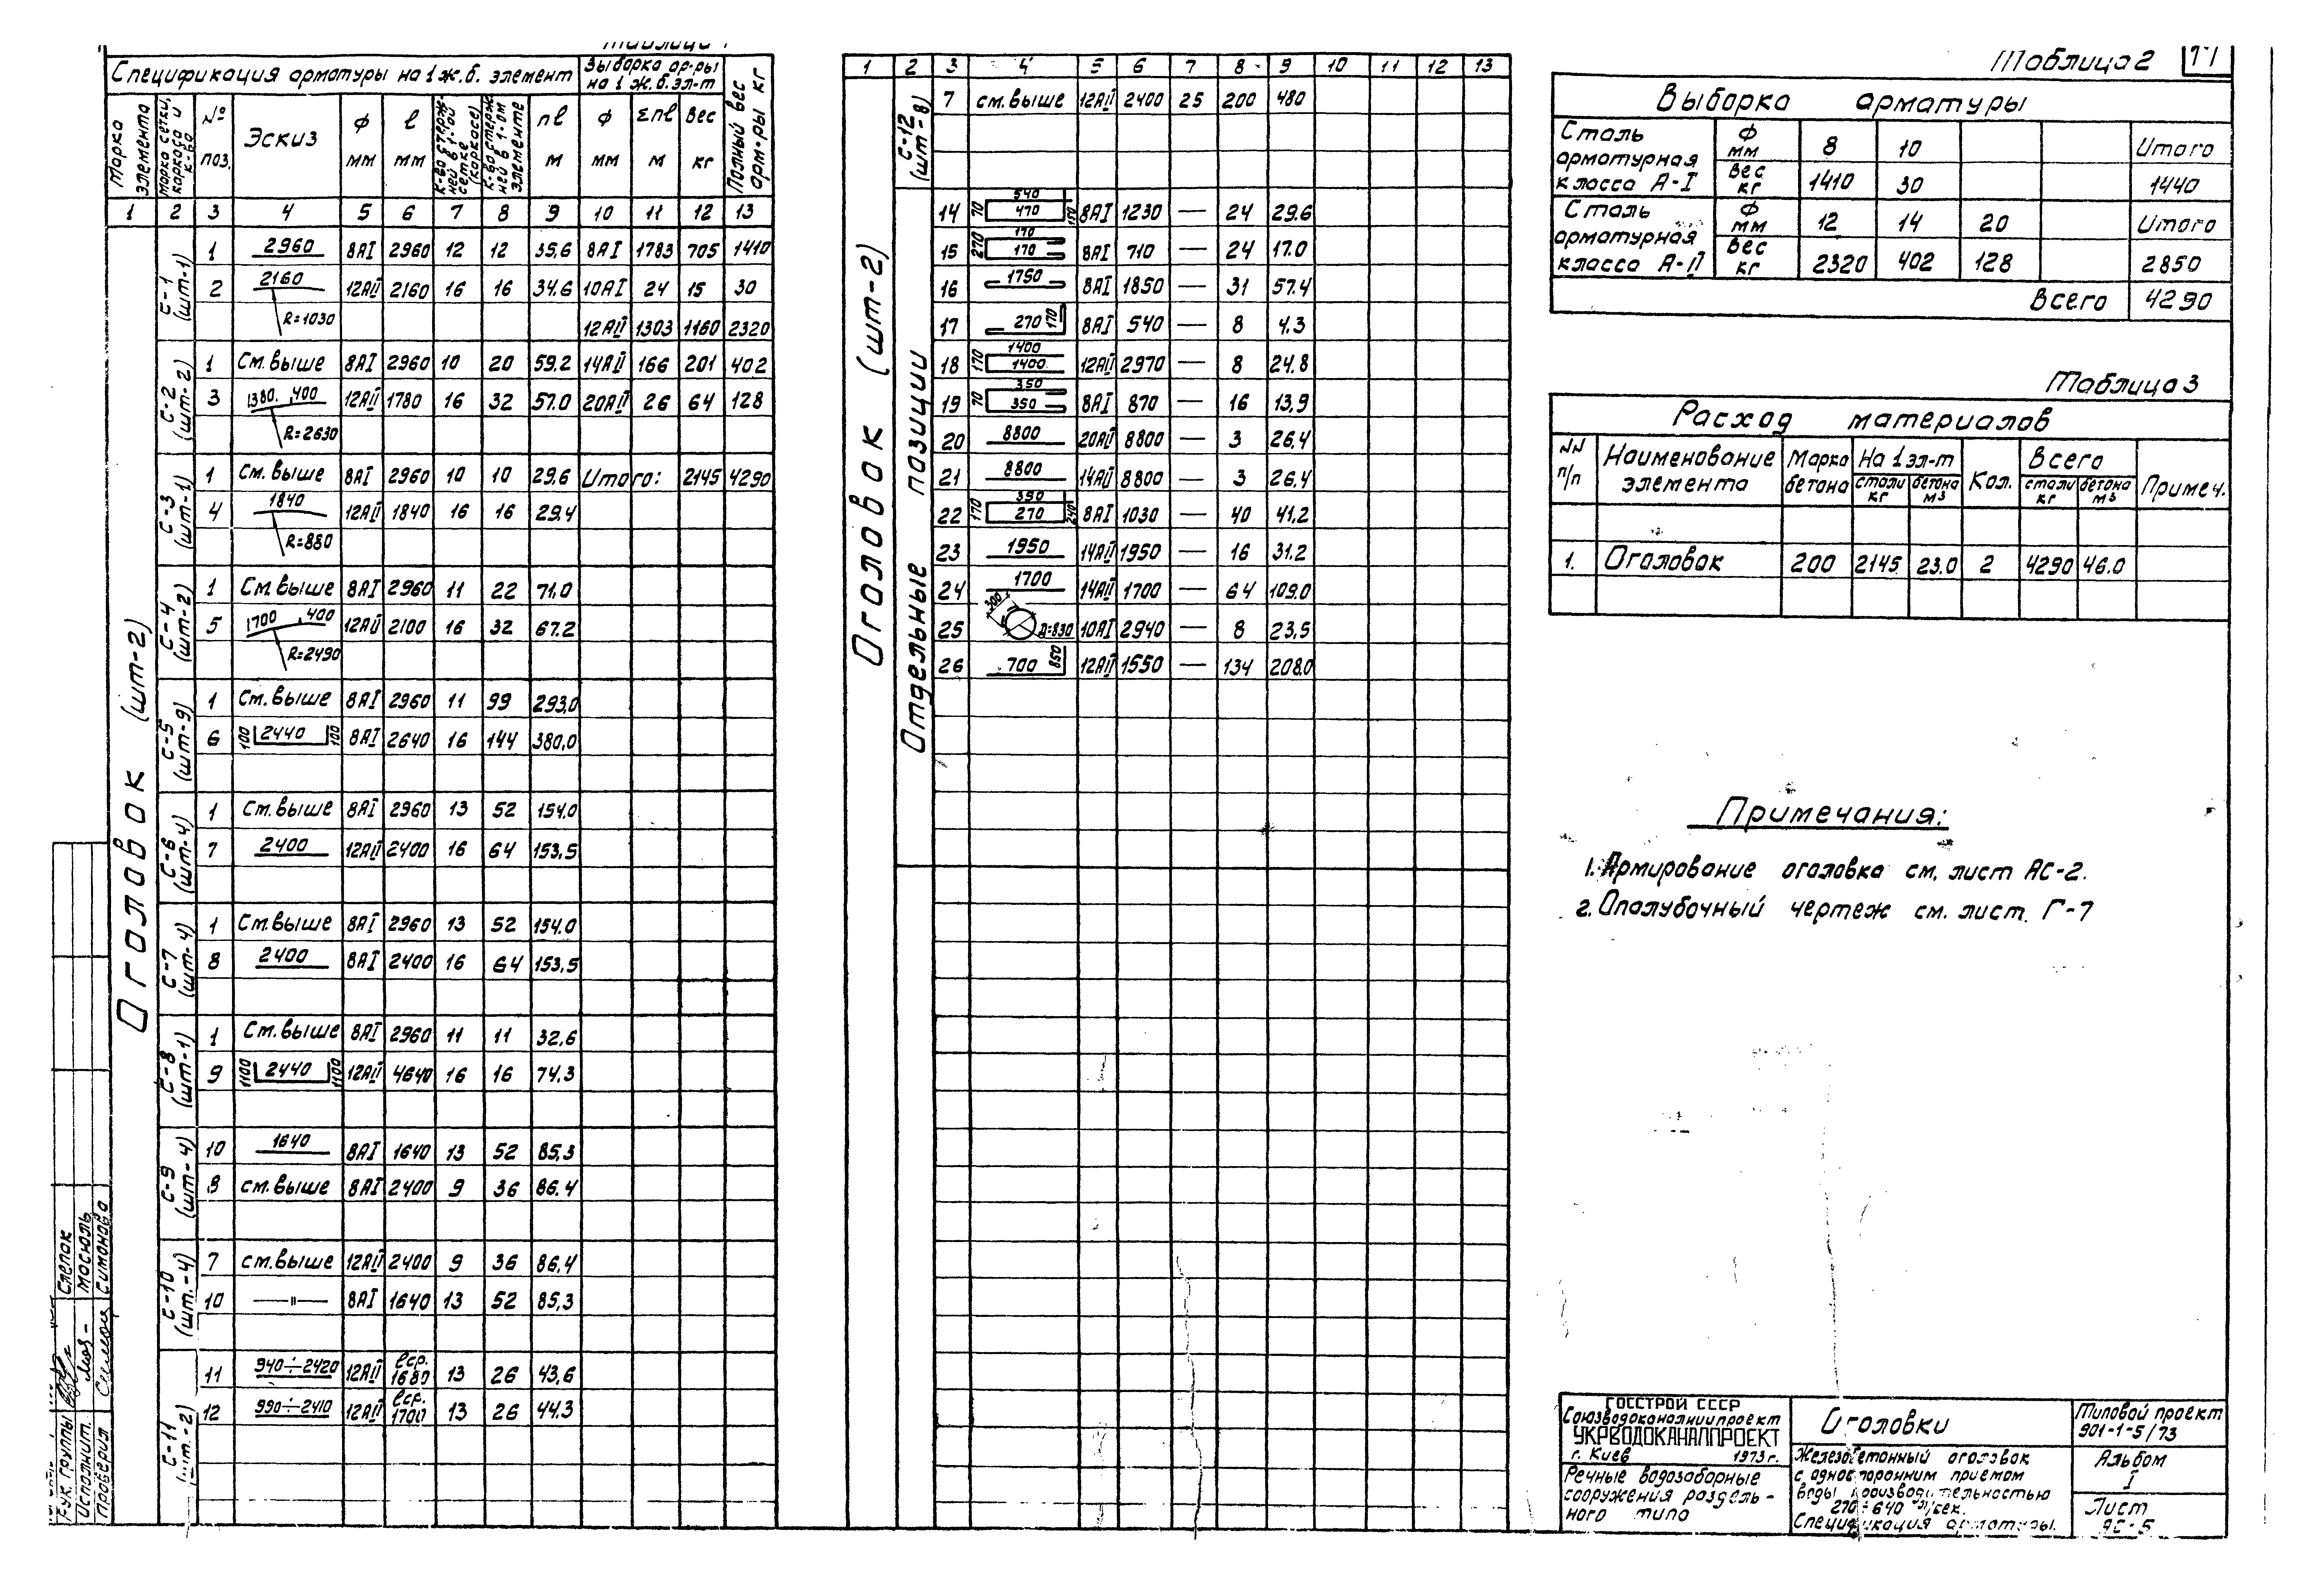 Таблица 1
Спецификация арматуры на 1 ж.б. элемент | Выборка ар-ры на 1 ж.б. эл-т | Полный вес арм-ры кг
Марка элемента | Марка сетки, каркаса и к-во | № поз. | Эскиз | ф мм | ℓ мм | К-во стержней в 1-ой сетке (каркасе) | К-во стержней в 1-ом элементе | nℓ м | ф мм | Σnℓ м | Вес кг
1 | 2 | 3 | 4 | 5 | 6 | 7 | 8 | 9 | 10 | 11 | 12 | 13
Оголовок (шт-2)
С-1 (шт-1)
1 | 2960 | 8АI | 2960 | 12 | 12 | 35,6 | 8АI | 1783 | 705 | 1410
2 | 2160 | 12АII | 2160 | 16 | 16 | 34.6 | 10АI | 24 | 15 | 30
R=1030 | 12АII | 1303 | 1160 | 2320
С-2 (шт-2)
1 | См. выше | 8АI | 2960 | 10 | 20 | 59.2 | 14АII | 166 | 201 | 402
3 | 1380. 400 | 12АII | 1780 | 16 | 32 | 57.0 | 20АII | 26 | 64 | 128
R=2630
С-3 (шт-1)
1 | См. выше | 8АI | 2960 | 10 | 10 | 29,6 | Итого: | 2145 | 4290
4 | 1840 | 12АII | 1840 | 16 | 16 | 29.4
R=880
С-4 (шт-2)
1 | См. выше | 8АI | 2960 | 11 | 22 | 71,0
5 | 1700 400 | 12АII | 2100 | 16 | 32 | 67.2
R=2490
С-5 (шт-9)
1 | См. выше | 8АI | 2960 | 11 | 99 | 293,0
6 | 100 2440 100 | 8АI | 2640 | 16 | 144 | 380,0
С-6 (шт-4)
1 | См. выше | 8АI | 2960 | 13 | 52 | 154,0
7 | 2400 | 12АII | 2400 | 16 | 64 | 153,5
С-7 (шт-4)
1 | См. выше | 8АI | 2960 | 13 | 52 | 154.0
8 | 2400 | 8АI | 2400 | 16 | 64 | 153,5
С-8 (шт-1)
1 | См. выше | 8АI | 2960 | 11 | 11 | 32,6
9 | 1100 2440 1100 | 12АII | 4640 | 16 | 16 | 74,3
С-9 (шт-4)
10 | 1640 | 8АI | 1640 | 13 | 52 | 85,3
8 | см. выше | 8АI | 2400 | 9 | 36 | 86.4
С-10 (шт.-4)
7 | см. выше | 12АII | 2400 | 9 | 36 | 86,4
10 | —"— | 8АI | 1640 | 13 | 52 | 85,3
С-11 (шт.-2)
11 | 940÷2420 | 12АII | ℓср. 1680 | 13 | 26 | 43,6
12 | 990÷2410 | 12АII | ℓср. 1700 | 13 | 26 | 44.3
Рук. группы Слепак
Исполнит. Мосюль
Проверил Симонова
1 | 2 | 3 | 4 | 5 | 6 | 7 | 8 | 9 | 10 | 11 | 12 | 13
Оголовок (шт-2)
С-12 (шт-8)
7 | см. выше | 12АII | 2400 | 25 | 200 | 480
Отдельные позиции
14 | 540 70 470 150 | 8АI | 1230 | — | 24 | 29.6
15 | 170 270 170 | 8АI | 710 | — | 24 | 17.0
16 | 1750 | 8АI | 1850 | — | 31 | 57.4
17 | 270 170 | 8АI | 540 | — | 8 | 4.3
18 | 1400 170 1400 | 12АII | 2970 | — | 8 | 24.8
19 | 350 70 350 | 8АI | 870 | — | 16 | 13,9
20 | 8800 | 20АII | 8800 | — | 3 | 26,4
21 | 8800 | 14АII | 8800 | — | 3 | 26.4
22 | 350 170 270 240 | 8АI | 1030 | — | 40 | 41,2
23 | 1950 | 14АII | 1950 | — | 16 | 31.2
24 | 1700 | 14АII | 1700 | — | 64 | 109.0
25 | 300 Д=830 | 10АI | 2940 | — | 8 | 23,5
26 | 700 850 | 12АII | 1550 | — | 134 | 208.0
Таблица 2
Выборка арматуры
Сталь арматурная класса А-I | ф мм | 8 | 10 | Итого
Вес кг | 1410 | 30 | 1440
Сталь арматурная класса А-II | ф мм | 12 | 14 | 20 | Итого
Вес кг | 2320 | 402 | 128 | 2850
Всего | 4290
Таблица 3
Расход материалов
NN п/п | Наименование элемента | Марка бетона | На 1 эл-т стали кг бетона м3 | Кол. | Всего стали кг бетона м3 | Примеч.
1. | Оголовок | 200 | 2145 | 23.0 | 2 | 4290 | 46.0
Примечания:
1. Армирование оголовка см. лист АС-2.
2. Опалубочный чертеж см. лист Г-7
ГОССТРОЙ СССР
Союзводоканалниипроект
УКРВОДОКАНАЛПРОЕКТ
г. Киев 1973г.
Речные водозаборные
сооружения раздель-
ного типа
Оголовки
Железобетонный оголовок
с односторонним приемом
воды производительностью
270÷640 л/сек.
Спецификация арматуры.
Типовой проект
901-1-5/73
Альбом
I
Лист
АС-5